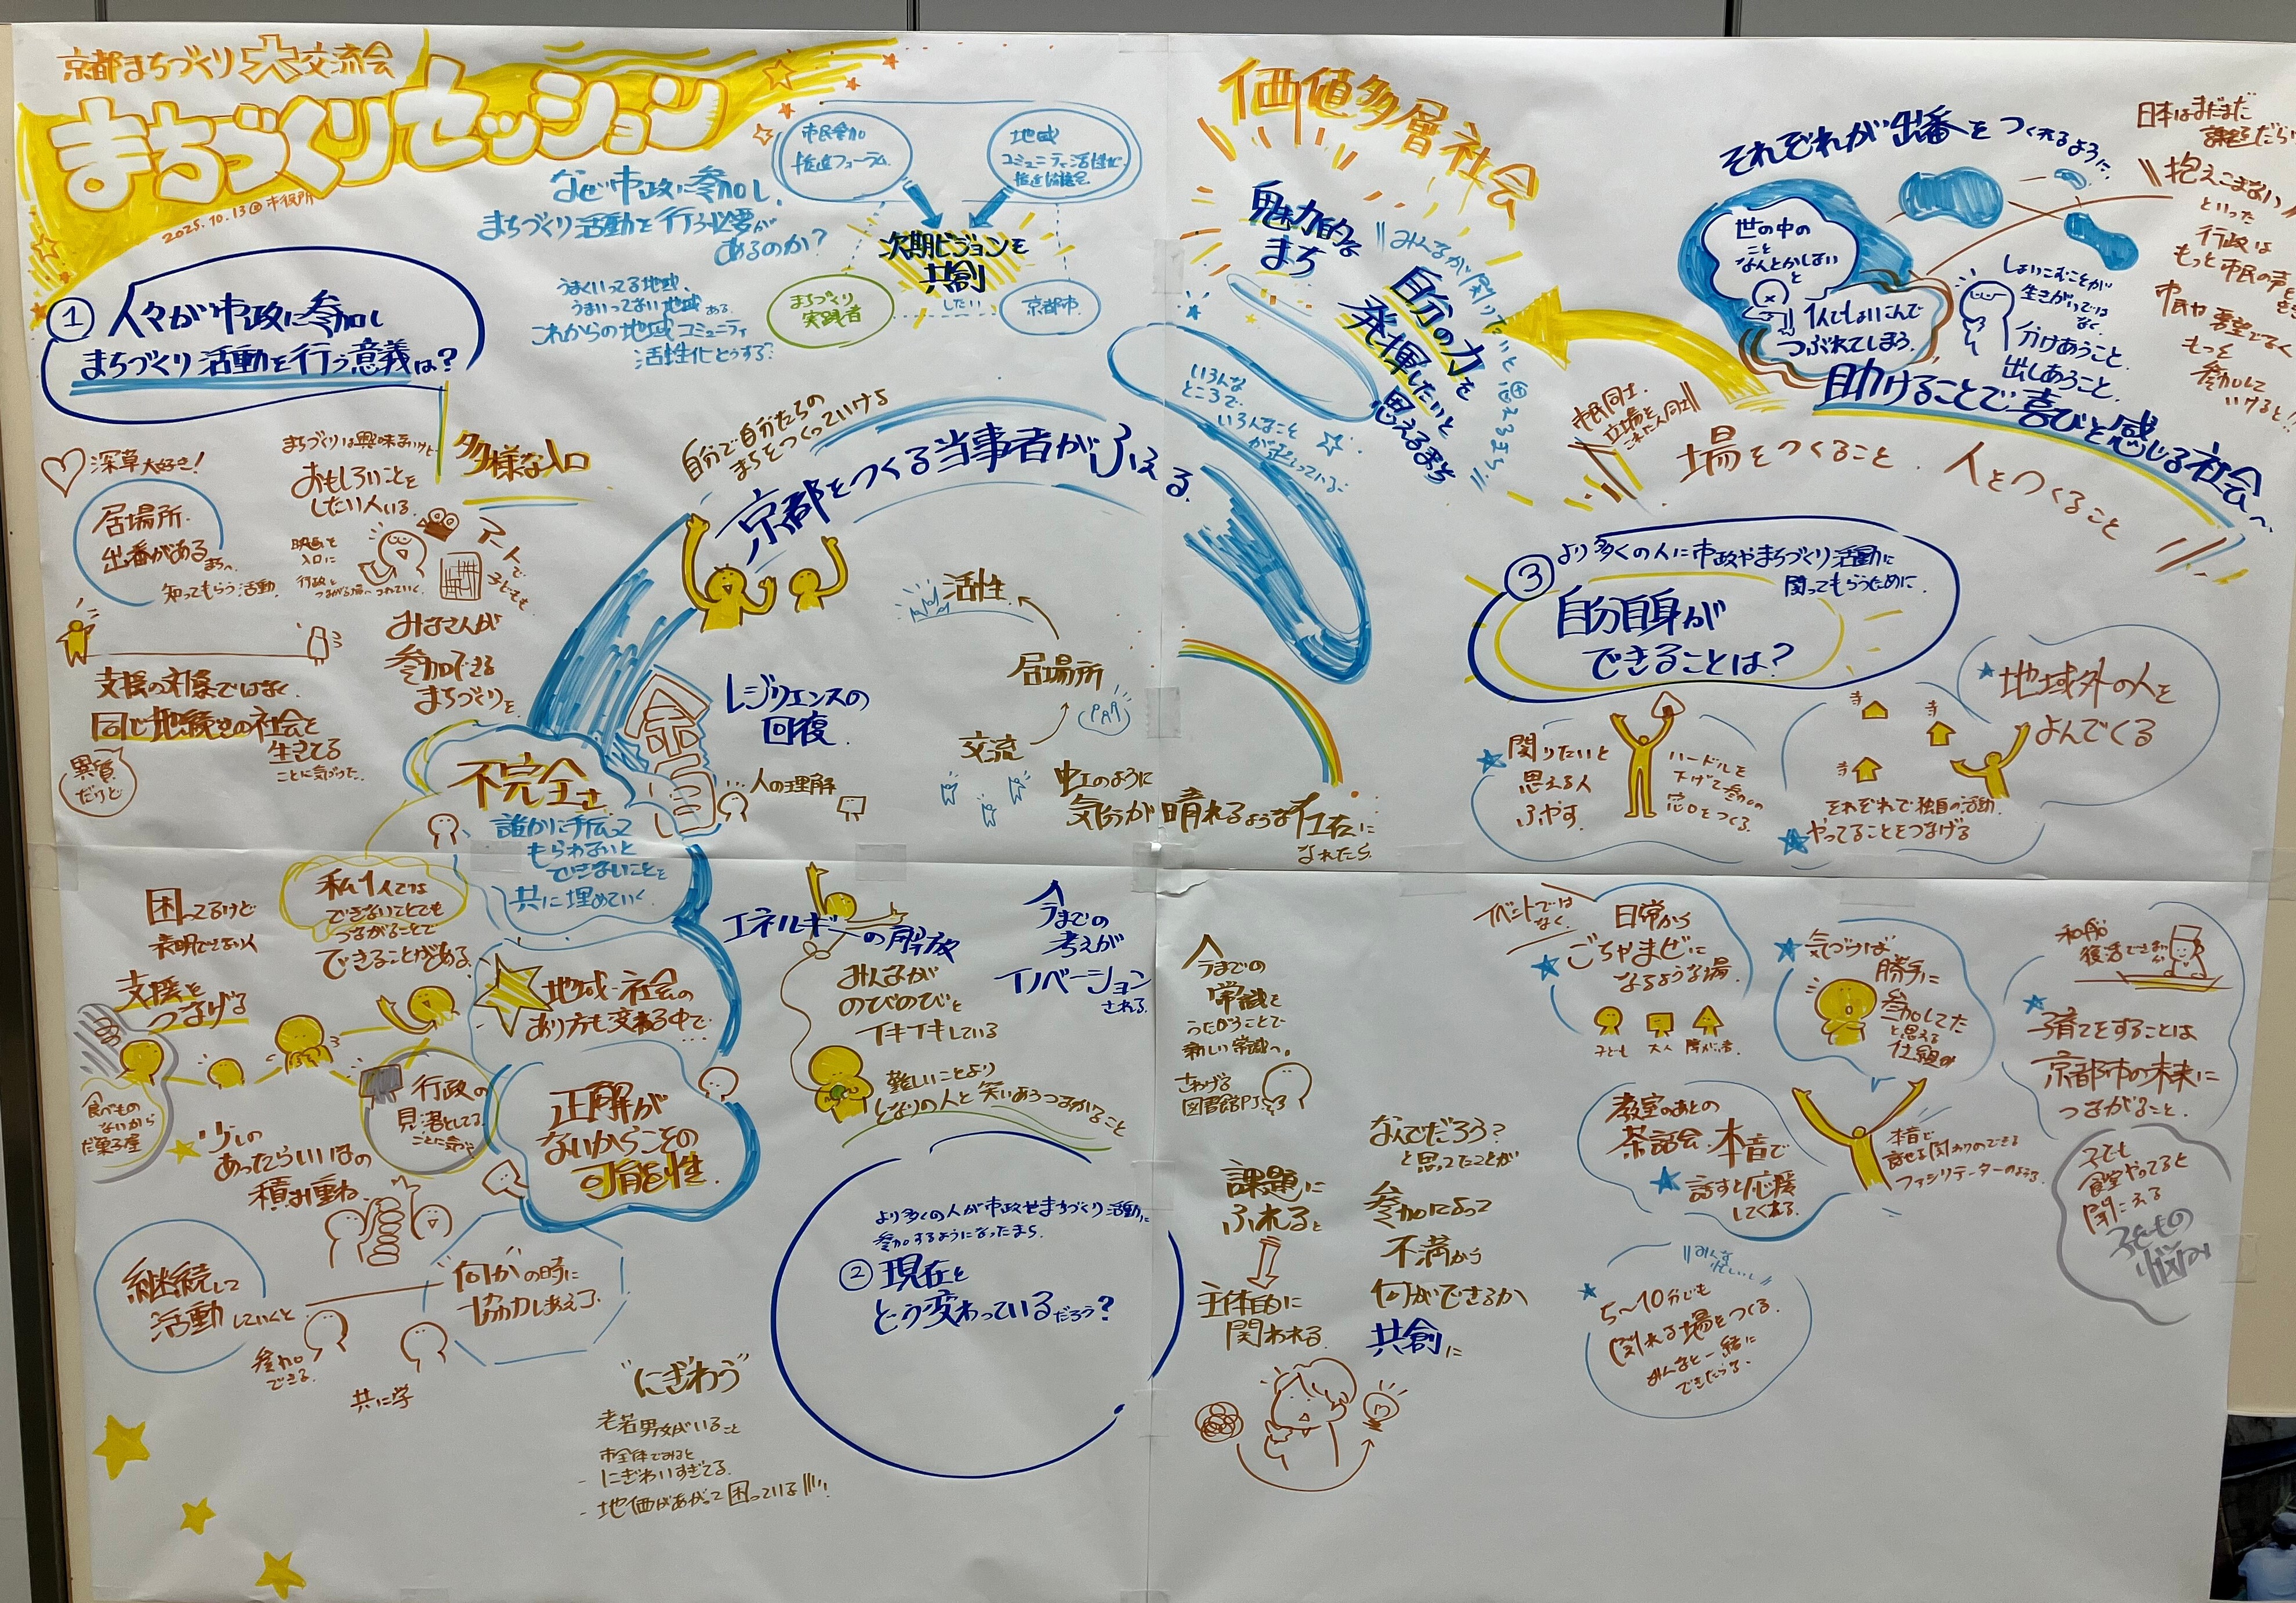 京都まちづくり大交流会
まちづくりセッション
2025.10.13@市役所
なぜ市政に参加し、
まちづくり活動を行う必要が
あるのか？
うまくいってる地域、
うまくいってない地域ある
これからの地域コミュニティ
活性化どうする？
市民参加
推進フォーラム
地域
コミュニティ活性化
推進協議会
次期ビジョンを
共創
したい
まちづくり
実践者
京都市
① 人々が市政に参加し
まちづくり活動を行う意義は？
深草大好き！
居場所・
出番があるまちへ
知ってもらう活動
まちづくりは興味ないけど
おもしろいことを
したい人いる
多様な入口
映画を
入口に
行政と
つながる場へつれていく
アートで
子どもも
みなさんが
参加できる
まちづくりを
支援の対象ではなく
同じ地続きの社会を
生きてる
ことに気づいた
異質
だけど
自分で自分たちの
まちをつくっていけるよ
京都をつくる当事者がふえる
活性
居場所
交流
レジリエンスの
回復
人の理解
虹のように
気分が晴れるような存在に
なれたら
不完全さ
誰かに手伝って
もらわないと
できないことを
共に埋めていく
困ってるけど
表明できない人
支援と
つなげる
私1人では
できないことでも
つながることで
できることがある
地域・社会の
あり方も変わる中で…
正解が
ないからこその
可能性
食べもの
ないから
だ菓子屋
少しの
あったらいいなの
積み重ね
行政の
見落としてる
ことに気づく
継続して
活動していくと
何かの時に
協力しあえる
参加
できる
共に学
エネルギーの解放
みんなが
のびのびと
イキイキしている
今までの
考えが
イノベーション
される
難しいことより
となりの人と笑いあうつながること
より多くの人が市政やまちづくり活動に
参加するようになったまち
② 現在と
どう変わっているだろう？
"にぎわう"
老若男女がいること
市全体でみると
- にぎわいすぎてる
- 地価があがって困っている
価値多層社会
魅力的な
まち
みんなが関りたいと思えるまち
自分の力を
発揮したいと
思えるまち
いろんな
ところで
いろんなこと
が起こっている
それぞれが出番をつくれるように
世の中の
こと
なんとかしない
と
1人でしょいこんで
つぶれてしまう
しょいこむことが
生きがいでは
なく
分けあうこと
出しあうこと
助けることで喜びと感じる社会へ
日本はまだまだ
抱えこまない
といった
行政は
もっと市民の声を
市民や
もっと
参加して
いけると！！
市民同士
立場を
こえた人同士
場をつくること、人をつくること
③ より多くの人に市政やまちづくり活動に
関ってもらうために
自分自身が
できることは？
関りたいと
思える人
ふやす
ハードルを
下げて参加の
窓口をつくる
地域外の人を
よんでくる
寺
寺
寺
それぞれで独自の活動
やってることをつなげる
今までの
常識を
うたがうことで
新しい常識へ
さわげる
図書館PJ
なんでだろう？
と思ってたことが
参加によって
不満から
何ができるか
共創に
課題に
ふれると
主体的に
関われる
イベントでは
なく
日常から
ごちゃまぜに
なるような場
子ども
大人
障がい者
気づけば
勝手に
参加してた
と思える
仕組み
和船
復活できない
子育てをすることは
京都市の未来に
つながること
教室のあとの
茶話会 本音で
話すと応援
してくれる
本音で
話せる関わりのできる
ファシリテーターのような
子ども
食堂やってると
聞こえる
子どもの
悩み
みんな
忙しい
5〜10分でも
関れる場をつくる
みんなと一緒に
できたらな